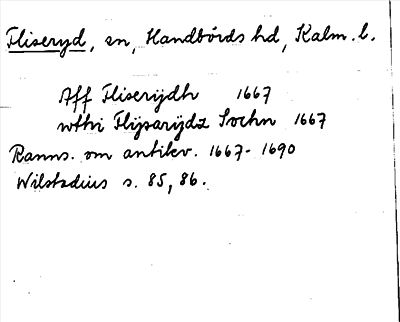 Fliseryd, sn, Handbörds hd, Kalm. l.
Aff Fliserijdh 1667
wthi Flijsarijdz Sochn 1667
Ranns. om antikv. 1667-1690
Wilstadius s. 85, 86.